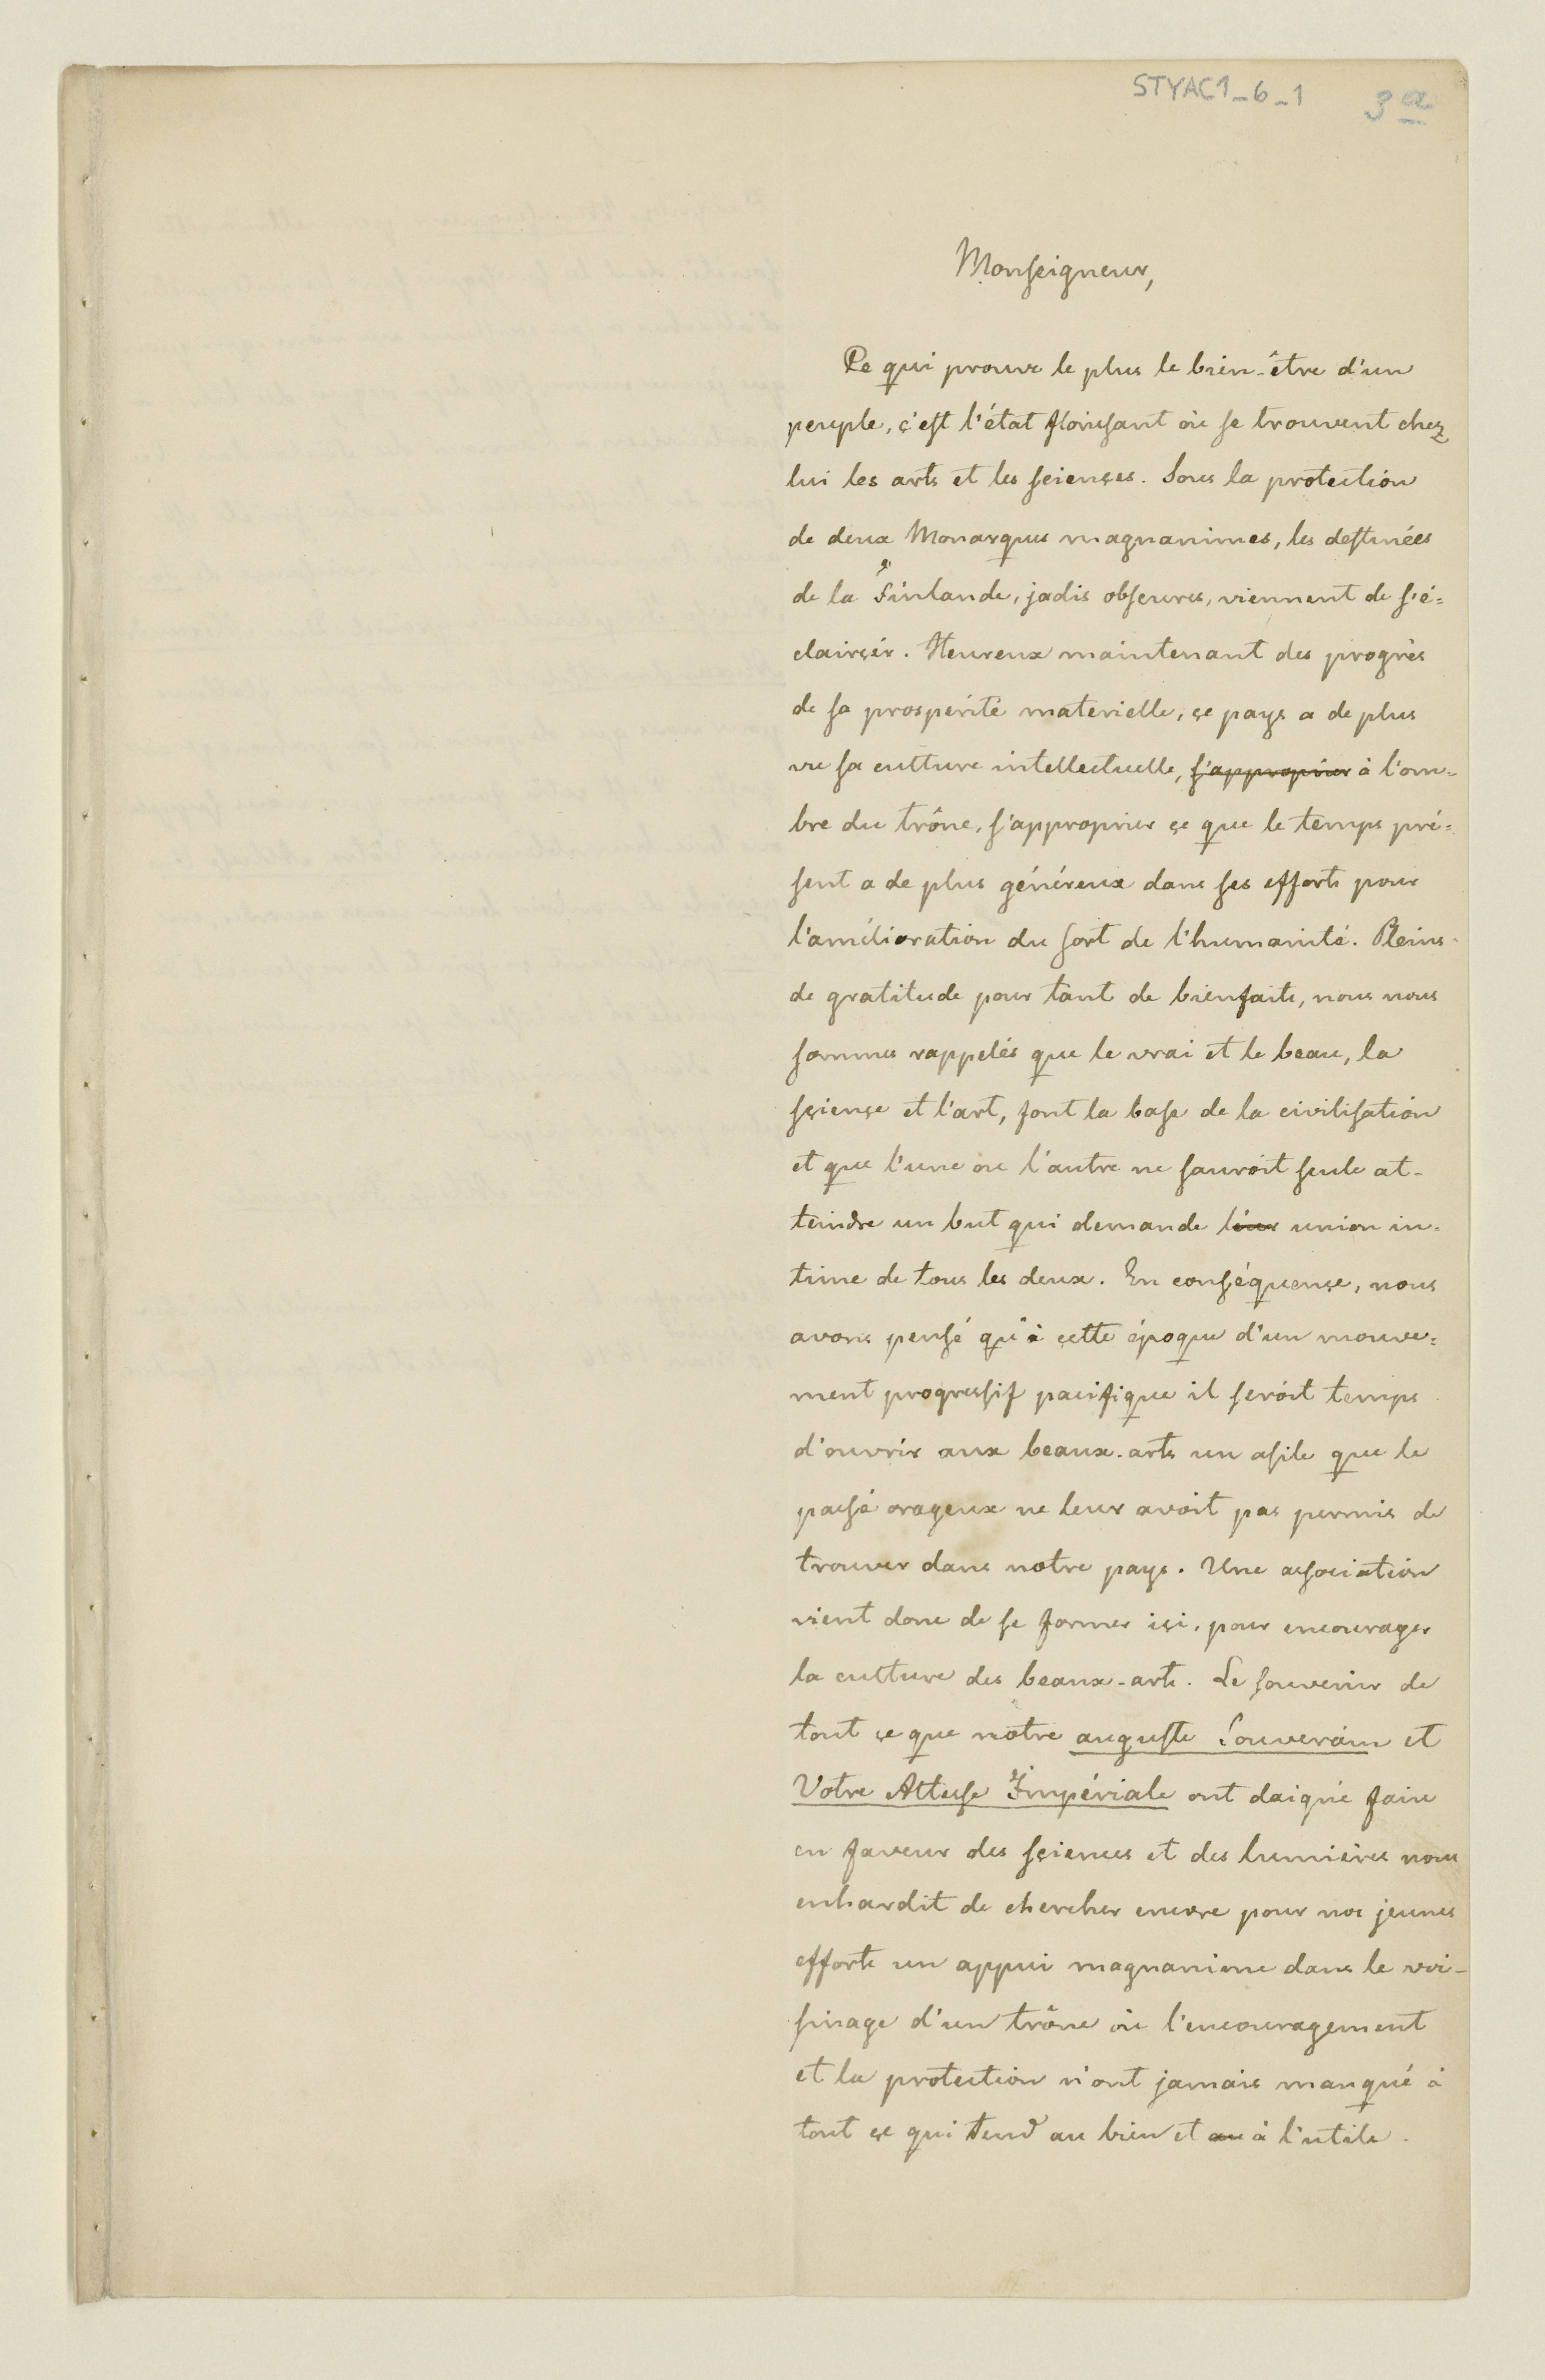 STYAC1_6_1 3a
Monseigneur,
Ce qui prouve le plus le bien-être d'un
peuple, ç'est l'état florissant où se trouvent chez
lui les arts et les scienses. Sous la protection
de deux Monarques magnanimes, les destinées
de la Finlande, jadis obscures, viennent de s'é=
clairçir. Heureux maintenant des progrès
de sa prospérité materielle, çe pays a de plus
vu sa culture intellectuelle, s'approprier à l'om=
bre du trône, s'approprier çe que le temps pré=
sent a de plus généreux dans ses efforts pour
l'amélioration du sort de l'humanité. Pleins
de gratitude pour tant de bienfaits, nous nous
sommes rappelés que le vrai et le beau, la
sçiençe et l'art, font la base de la civilisation
et que l'une ou l'autre ne sauroit seule at-
teindre un but qui demande leur union in=
time de tous les deux. En conséquençe, nous
avons pensé qu'à çette époque d'un mouve=
ment progressif pacifique il seroit temps
d'ouvrir aux beaux-arts un asile que le
passé orageux ne leur avoit pas permis de
trouver dans notre pays. Une association
vient donc de se former içi, pour encourager
la culture des beaux-arts. Le souvenir de
tout çe que notre auguste Souverain et
Votre Altesse Impériale ont daigné faire
en faveur des sçiences et des lumières nous
enhardit de chercher encore pour nos jeunes
efforts un appui magnanime dans le voi-
sinage d'un trône où l'encouragement
et la protection n'ont jamais manqué à
tout çe qui tend au bien et au à l'utile.